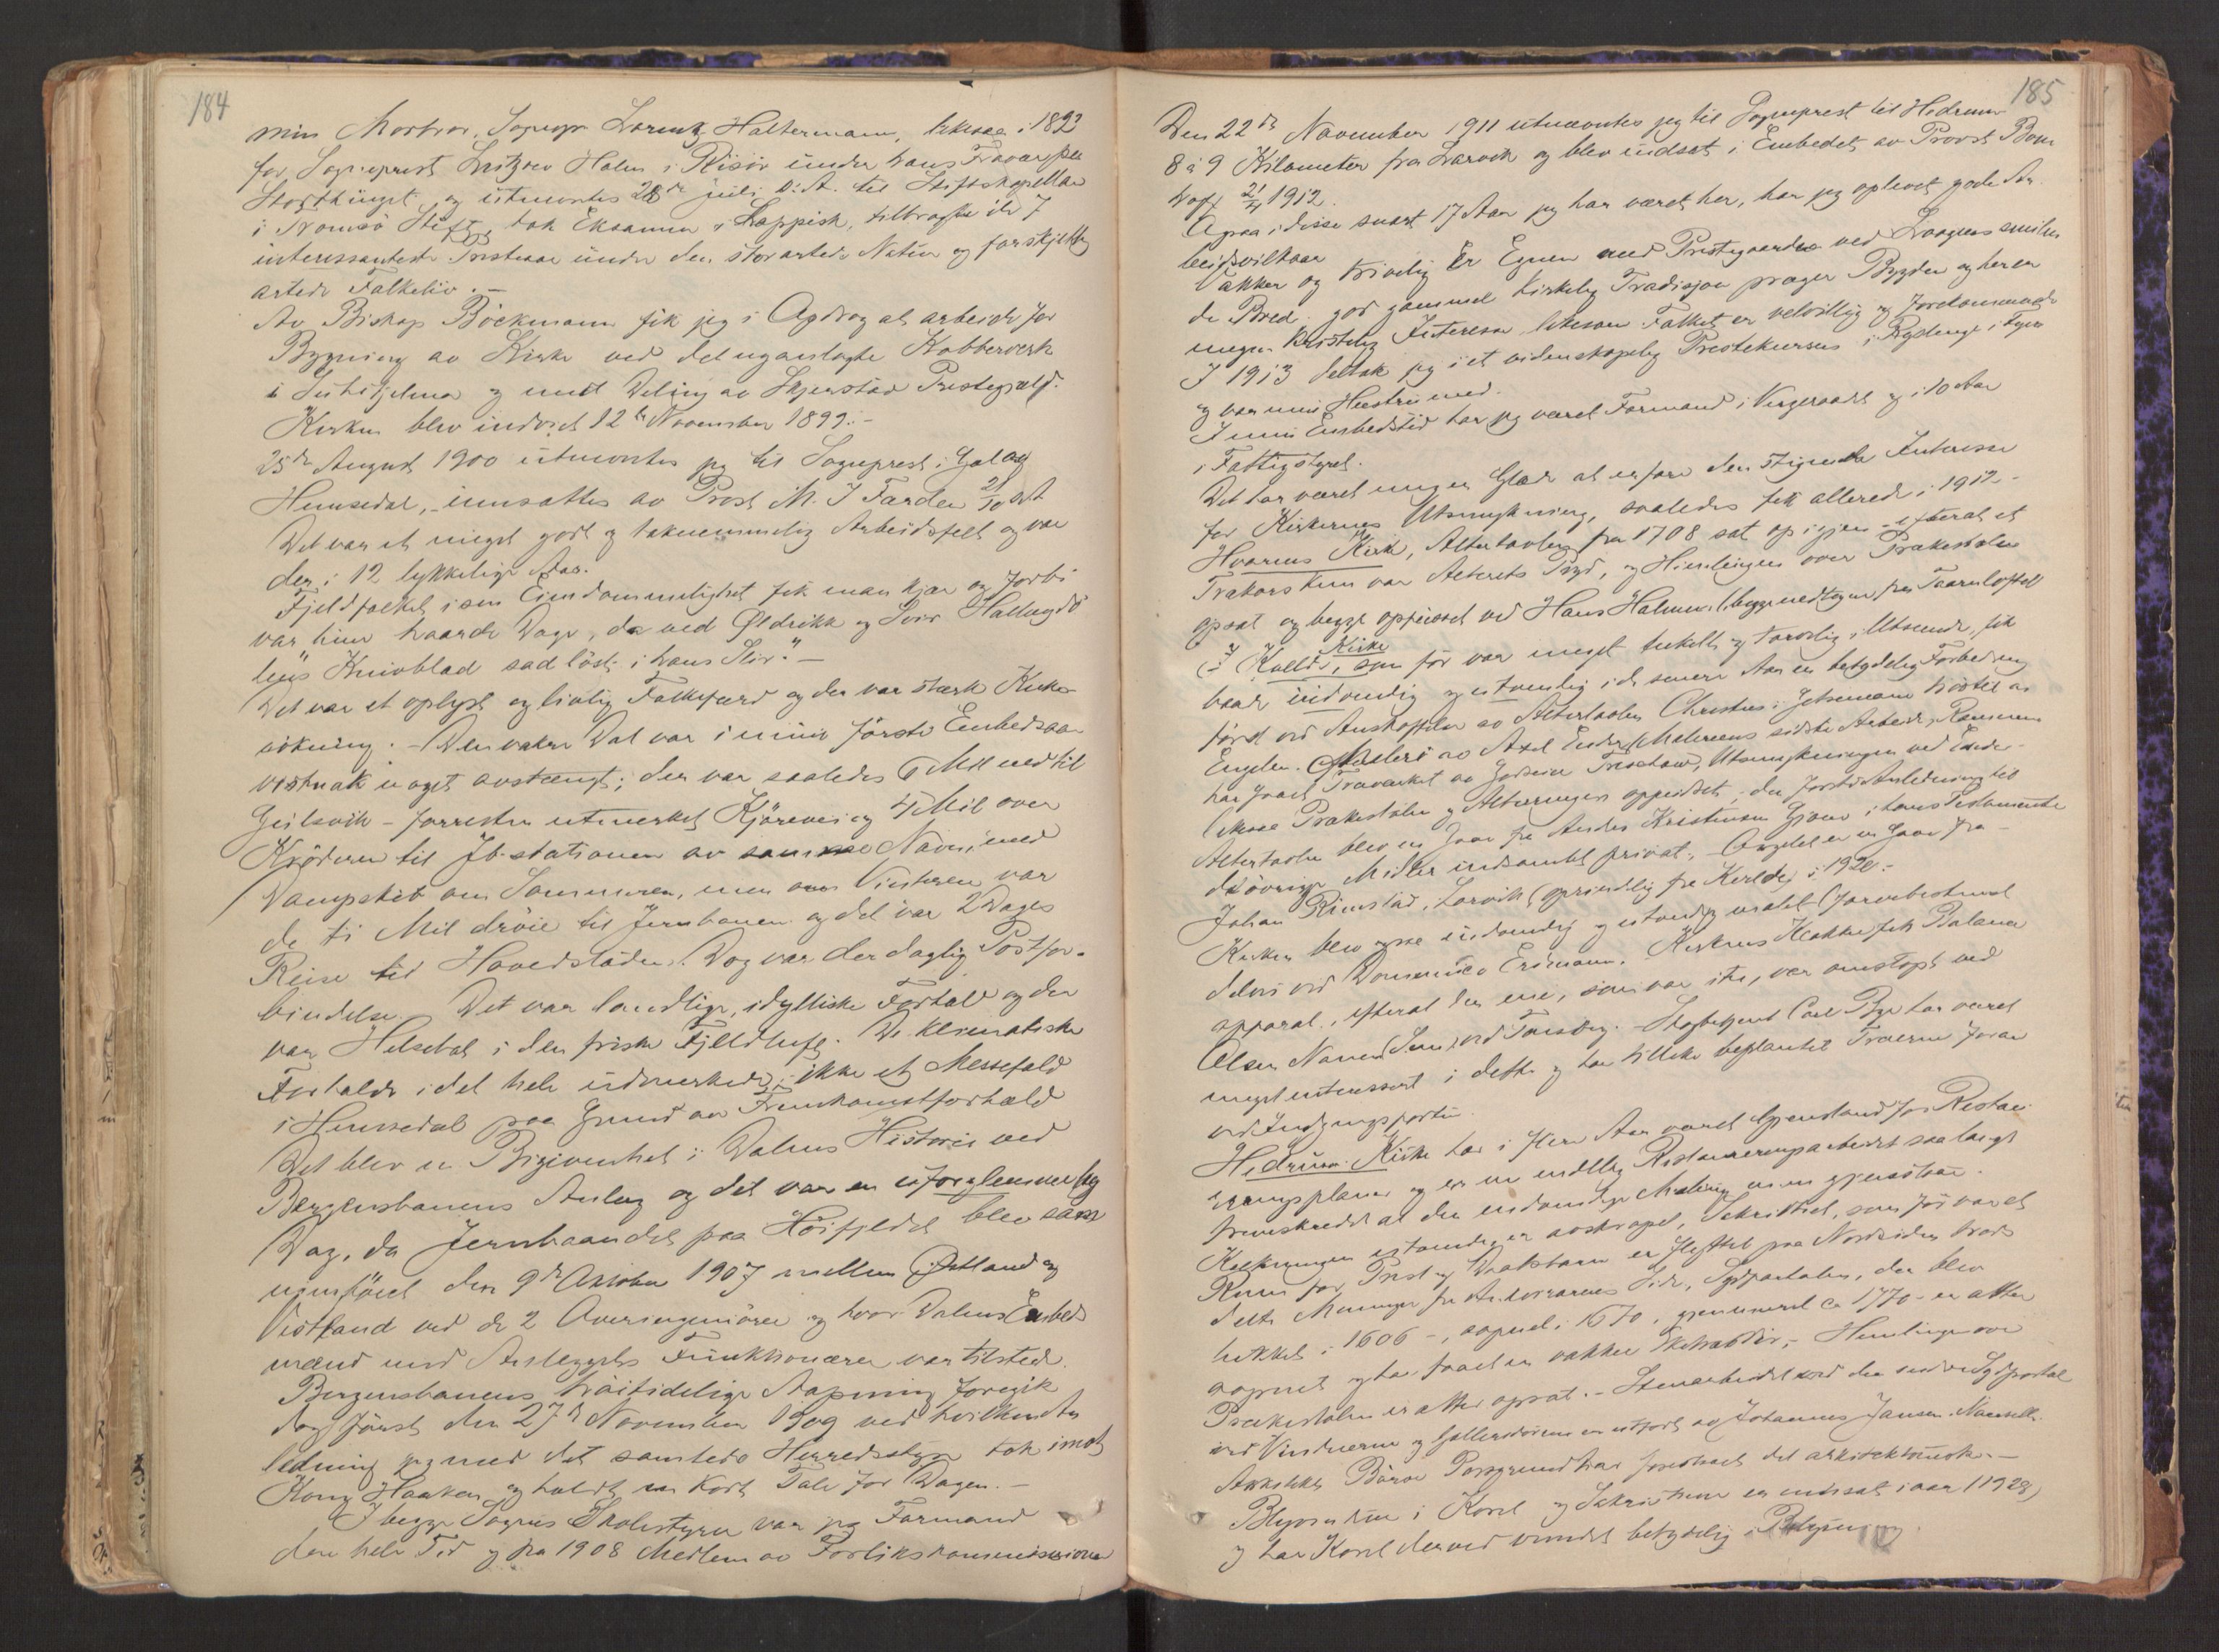 184
min Morbror, Sognepr Lorentz Haltermann, likesaa i 1892
for Sogneprest Kritzow Holm i Risör under hans Fravær paa
Storthinget og utnevntes 28de juli s. A. til Stiftskapellan
i Tromsö Stift, tok Eksamen i Lappisk, tilbragte de 7
interessanteste Presteaar under den storartede Natur og forskjellig
artede Folkeliv. –
Av Biskop Böckmann fik jeg i Opdrag at arbeide for
Bygning av Kirke ved det nyanlagte Kobberverk
i Sulitjelma og med Deling av Skjerstad Prestegjeld.
Kirken blev indviet 12te November 1899. –
25de August 1900 utnevntes jeg til Sogneprest i Gol og
Hemsedal, – innsattes av Prost M. J Færden 21/10 s A
Det var et meget godt og taknemmelig Arbeidsfelt og var
der i 12 lykkelige Aar.
Fjeldfolket i sin Eiendommelighet fik man kjær og forbi
var hine haarde Dage, da ved Øldrikk og Svir Hallingdö
lens Knivblad sad löst i hans Slir." –
Det var et oplyst og livlig Folkeferd og der var stærk Kirke-
sökning. – Den vakre Dal var i mine förste Embedsaar
vistnok noget avstængt; der var saaledes 6 Mil ned til
Gulsvik – forresten utmerket Kjörevei og 4 Mil over
Kröderen til Jb. stationen av samme Navn, med
Dampskib om Sommeren, men om Vinteren var
de ti Mil dröie til Jernbanen og det var 2 Dages
Reise til Hovedstaden. Dog var der daglig Postfor-
bindelse. Det var landlige, idylliske Forhold og der
var Helsebot i den friske Fjeldluft. De klimatiske
Forholde i det hele udmerkede; ikke et Messefald
i Hemsedal paa Grund av Fremkomstforhold
Det blev en Begivenhet i Dalens Historie ved
Bergensbanens Anlæg og det var en uforglemmelig
Dag, da Jernbaandet paa Höifjeldet blev sam
menföiet den 9de Oktober 1907 mellem Østland og
Vestland ved de 2 Overingeniörer og hvor Dalens Embeds
mænd med Anlæggets Funktionærer var tilstede.
Bergensbanens höitidelige Aapning foregik
dog först den 27de November 1909 ved hvilken An
ledning jeg med det samlede Herredsstyre tok imot
Kong Haakon og holdt en kort Tale for Dagen. –
I begge Sognes Skolestyrer var jeg Formand
den hele Tid og fra 1908 Medlem av Forlikskommissionen
185
Den 22de November 1911 utnævntes jeg til Sogneprest til Hedrum
8 à 9 Kilometer fra Larvik og blev indsat i Embedet av Provst Bom
hoff 21/4 1912.
Ogsaa i disse snart 17 Aar jeg har været her, har jeg oplevet gode Ar
beidsvilkaar
Vakker og trivelig er Egnen med Prestegaarden ved Laagens smilen
de Bred. god gammel kirkelig Tradisjon præger Bygden og her er
megen kristelig Interesse likesom Folket er velvillig og forekommende
I 1913 deltok jeg i et videnskapelig Prestekursus i Ryslinge i Fyen
og var min Hustru med.
I min Embedstid har jeg været Formand i Vergeraadet og i 10 Aar
i Fattigstyret.
Det har været meg en Glæde at erfare den stigende Interesse
for Kirkernes Utsmykning, saaledes fik allerede i 1912 –
Hvarnes Kirke, Altertavlen fra 1708 sat op igjen – efterat et
Trækors kun var Alterets Pryd, og Himlingen over Prækestolen
opsat og begge oppusset ved Hans Holmen (begge nedtagne fra Taarnloftet
I Kvelde Kirke, som för var meget enkelt og tarvelig i Utseende, fik
baade indvendig og utvendig i de senere Aar en betydelig Forbedring
först ved Anskaffelse av Altertavlen Christus i Getsemane tröstet av
Engelen. Maleri av Axel Ender (Malerens sidste Arbeide, Rammen
har faaet Træverket av Godseier Treschow, Utsmykningen ved Ender –
likesaa Prækestolen og Alterringen oppusset, – der förste Anledning til
Altertavlen blev en Gave fra Anders Kristensen Gjone i hans Testamente
de övrige Midler indsamlet privat. Orgelet er en Gave fra –
Johan Rimstad, Larvik (oprindelig fra Kvelde) i 1920. –
Kirken blev ogsaa indvendig og utvendig malet (farvebestemmel
delvis ved Domenico Erdmann. Kirkens Klokker fik Balance
apparat, efterat den ene, som var itu, var omstöpt ved
Olsen Nauen (Sem) ved Tönsberg. – Skogbetjent Carl Bye har været
meget interessert i dette og har tillike beplantet Træerne foran
ved Indgangsporten.
Hedrum Kirke har i flere Aar været Gjenstand for Restau
reringsplaner og er nu endelig Restaureringsarbeidet saa langt
fremskredet at den indvendige Maling nu en gjenstaar.
Kalkningen utvendig er avskrapet, Sakristiet, som för var et
Rum for Prest og Daabsbarn er flyttet paa Nordsiden trods
delte Meninger fra Antikvarernes Side, Sydportalen, der blev
lukket i 1606 –, aapnet i 1670, gjenmuret ca 1770 – er atter
aapnet og har faaet en vakker Eketræsdör, – Himlingen over
Prækestolen er atter opsat. – Stenarbeidet ved den indre Sydportal
ved Vinduerne og Galleridörene er utfört av Johannes Jansen Nanset.
Arkitekt Börve Porsgrund har forestaaet det arkitektoniske. –
Blyvinduer i Koret og Sakristiene er indsat i aar (1928)
og har Koret derved vundet betydelig i Belysning